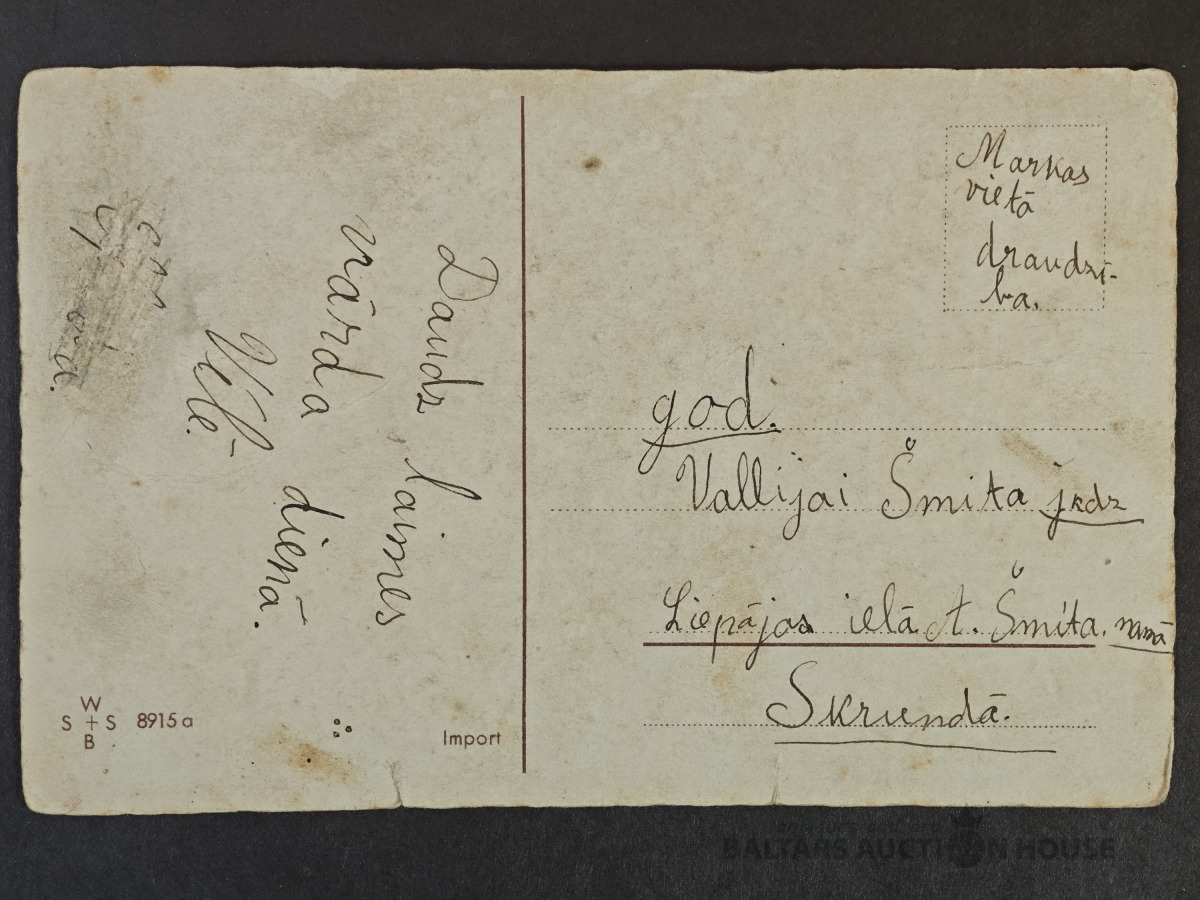 Daudz laimes
vārda dienā.
Vēlē
Markas
vietā
draudzī-
ba.
god.
Vallijai Šmita jkdz
Liepājas ielā A. Šmita. namā
Skrundā.
W
S + S 8915 a
B
Import
BALTARS AUCTION HOUSE